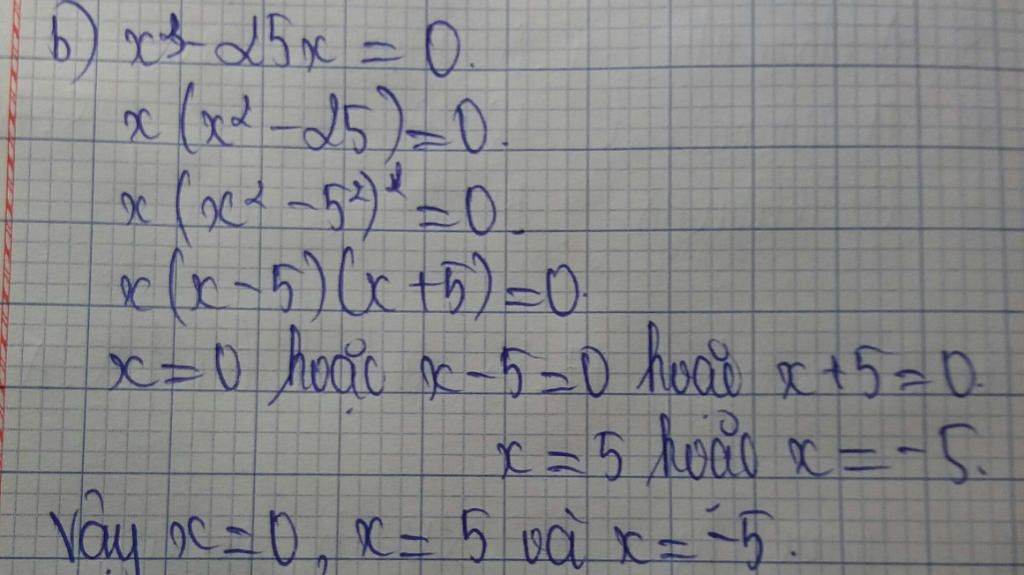 b) x³ - 25x = 0.
x (x² - 25) = 0.
x (x² - 5²)² = 0.
x (x - 5) (x + 5) = 0.
x = 0 hoặc x - 5 = 0 hoặc x + 5 = 0.
x = 5 hoặc x = -5.
Vậy x = 0, x = 5 và x = -5.